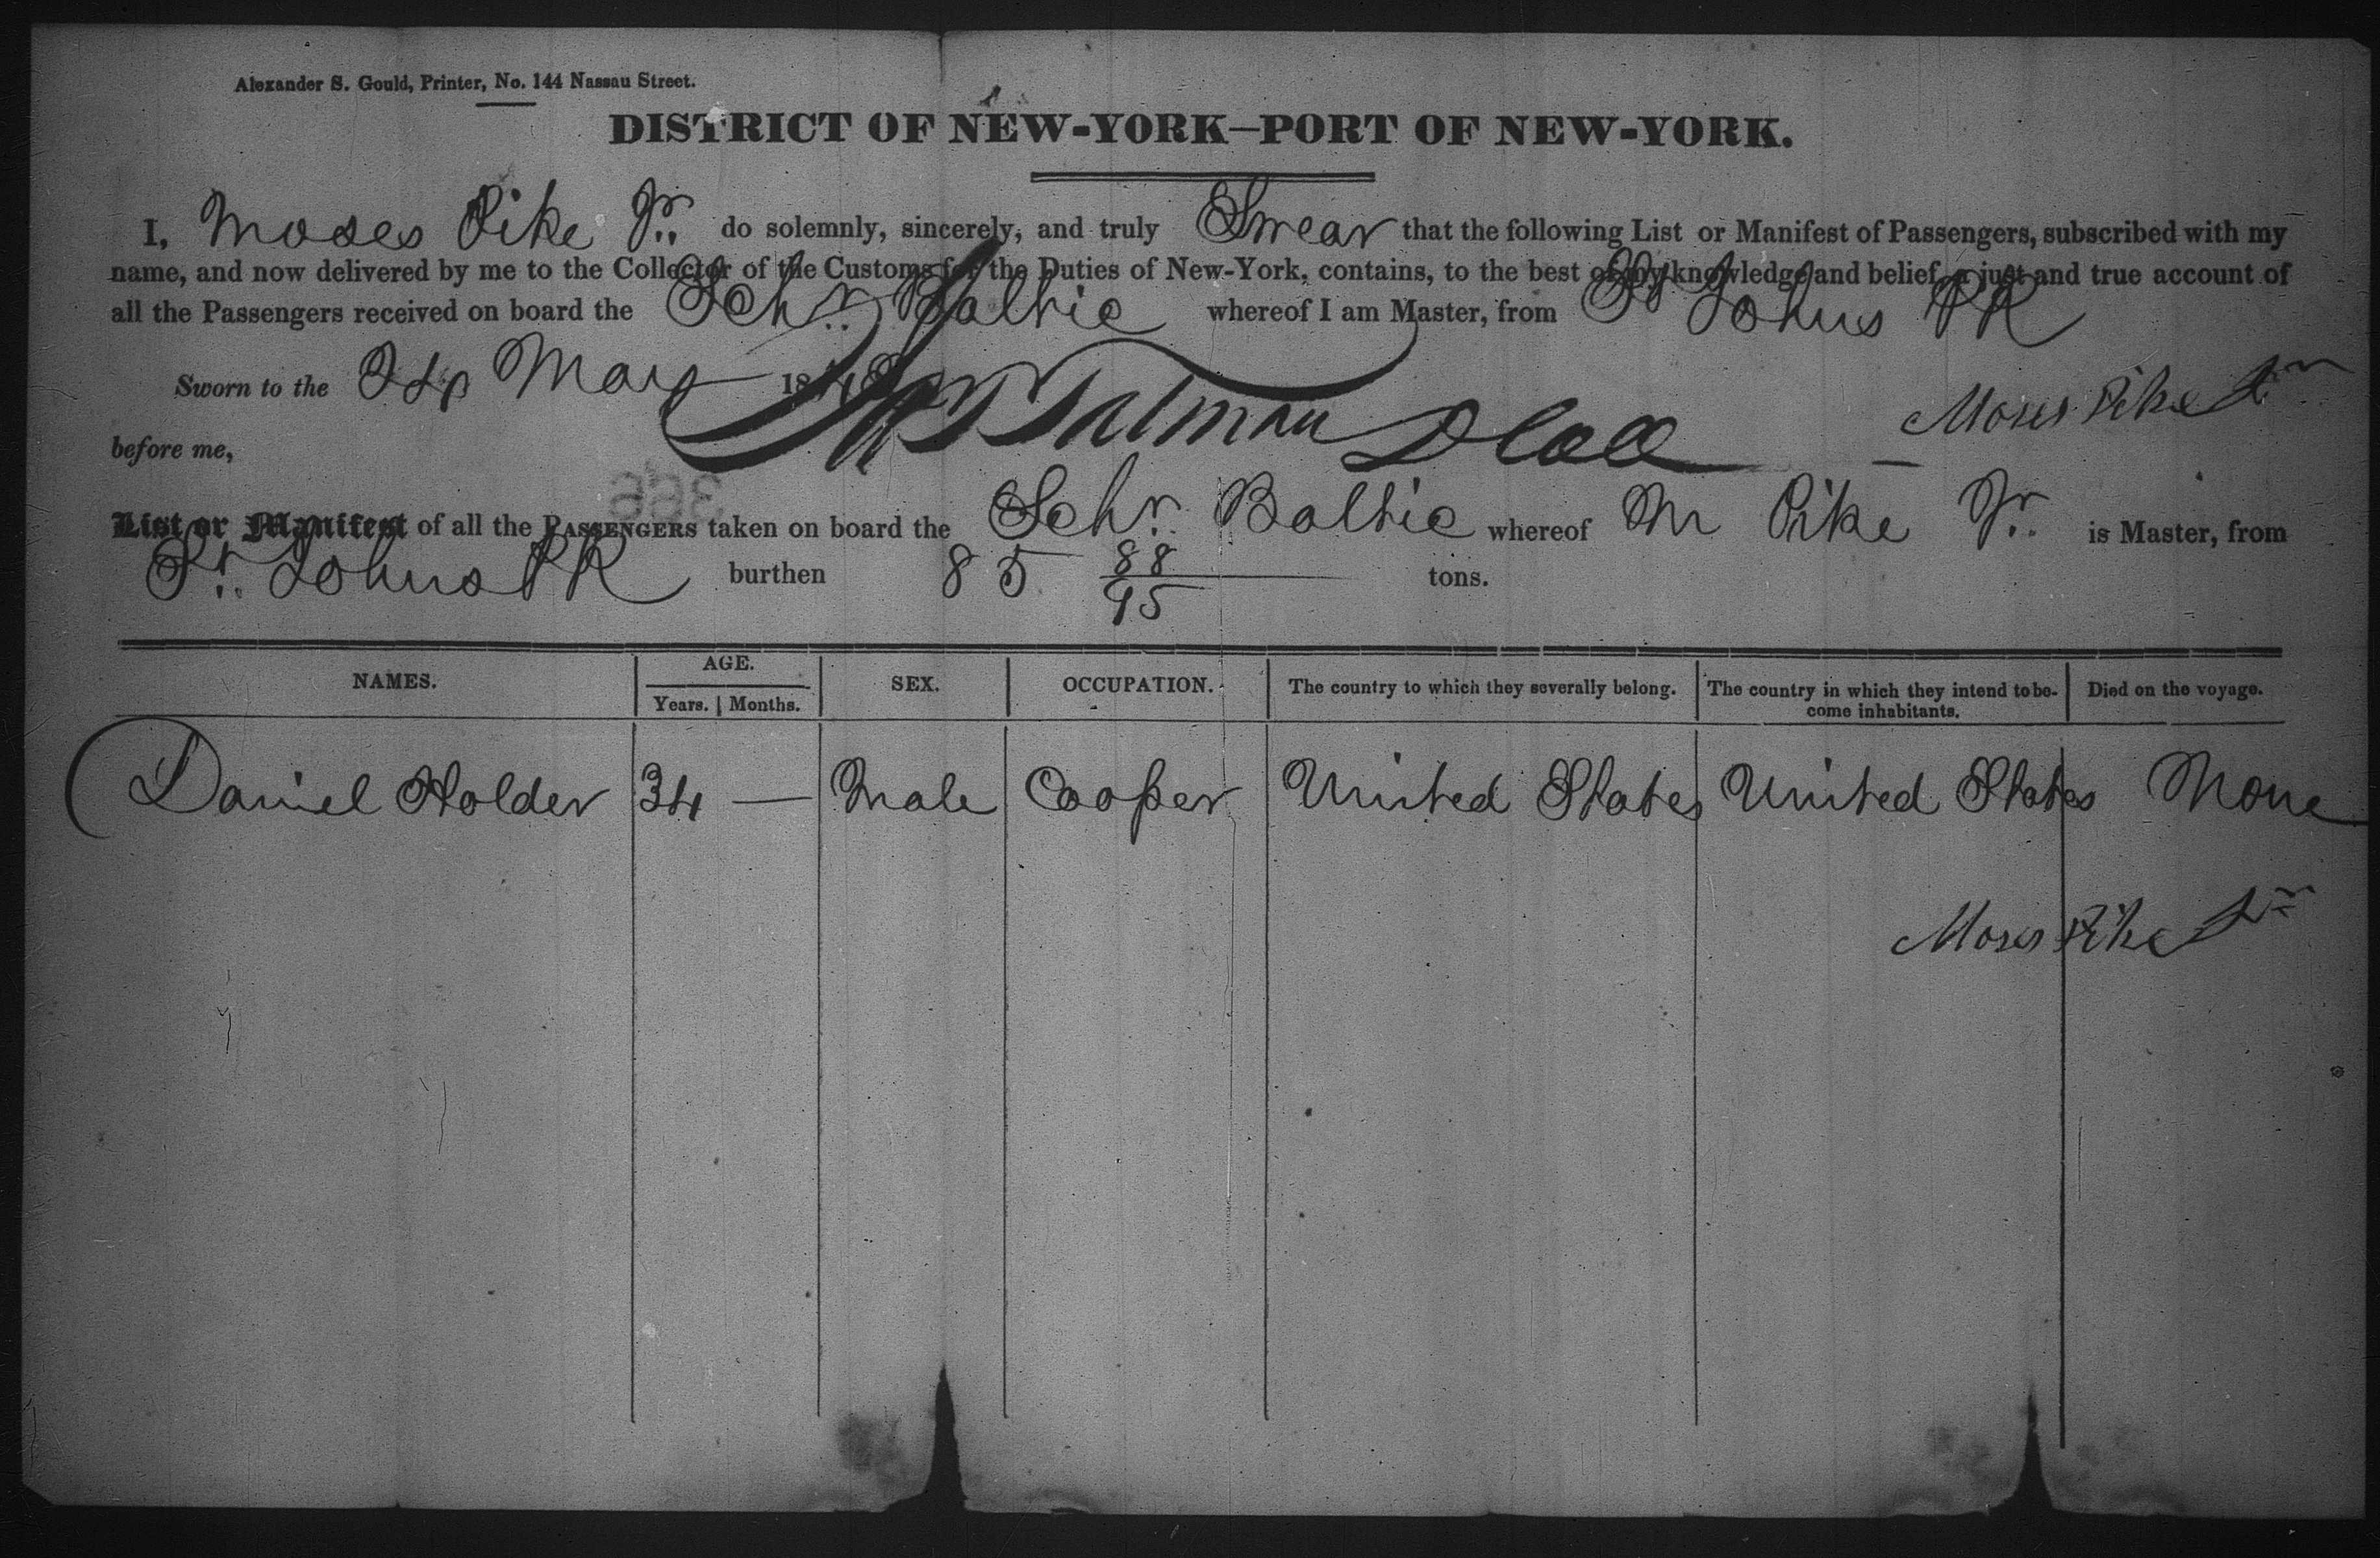 Alexander S. Gould, Printer, No. 144 Nassau Street.
DISTRICT OF NEW-YORK—PORT OF NEW-YORK.
I, Moses Pike Jr. do solemnly, sincerely, and truly Swear that the following List or Manifest of Passengers, subscribed with my
name, and now delivered by me to the Collector of the Customs for the Duties of New-York, contains, to the best of my knowledge and belief, a just and true account of
all the Passengers received on board the Schr. Baltic whereof I am Master, from St Johns PR
Sworn to the May 184
Moses Pike Jr
before me,
366
List or Manifest of all the PASSENGERS taken on board the Schr. Baltic whereof M Pike Jr. is Master, from
St. Johns PR burthen 85 88/95 tons.
NAMES. AGE. Years. Months. SEX. OCCUPATION. The country to which they severally belong. The country in which they intend to be-come inhabitants. Died on the voyage.
Daniel Holder 34 — Male Cooper United States United States None
Moses Pike Jr